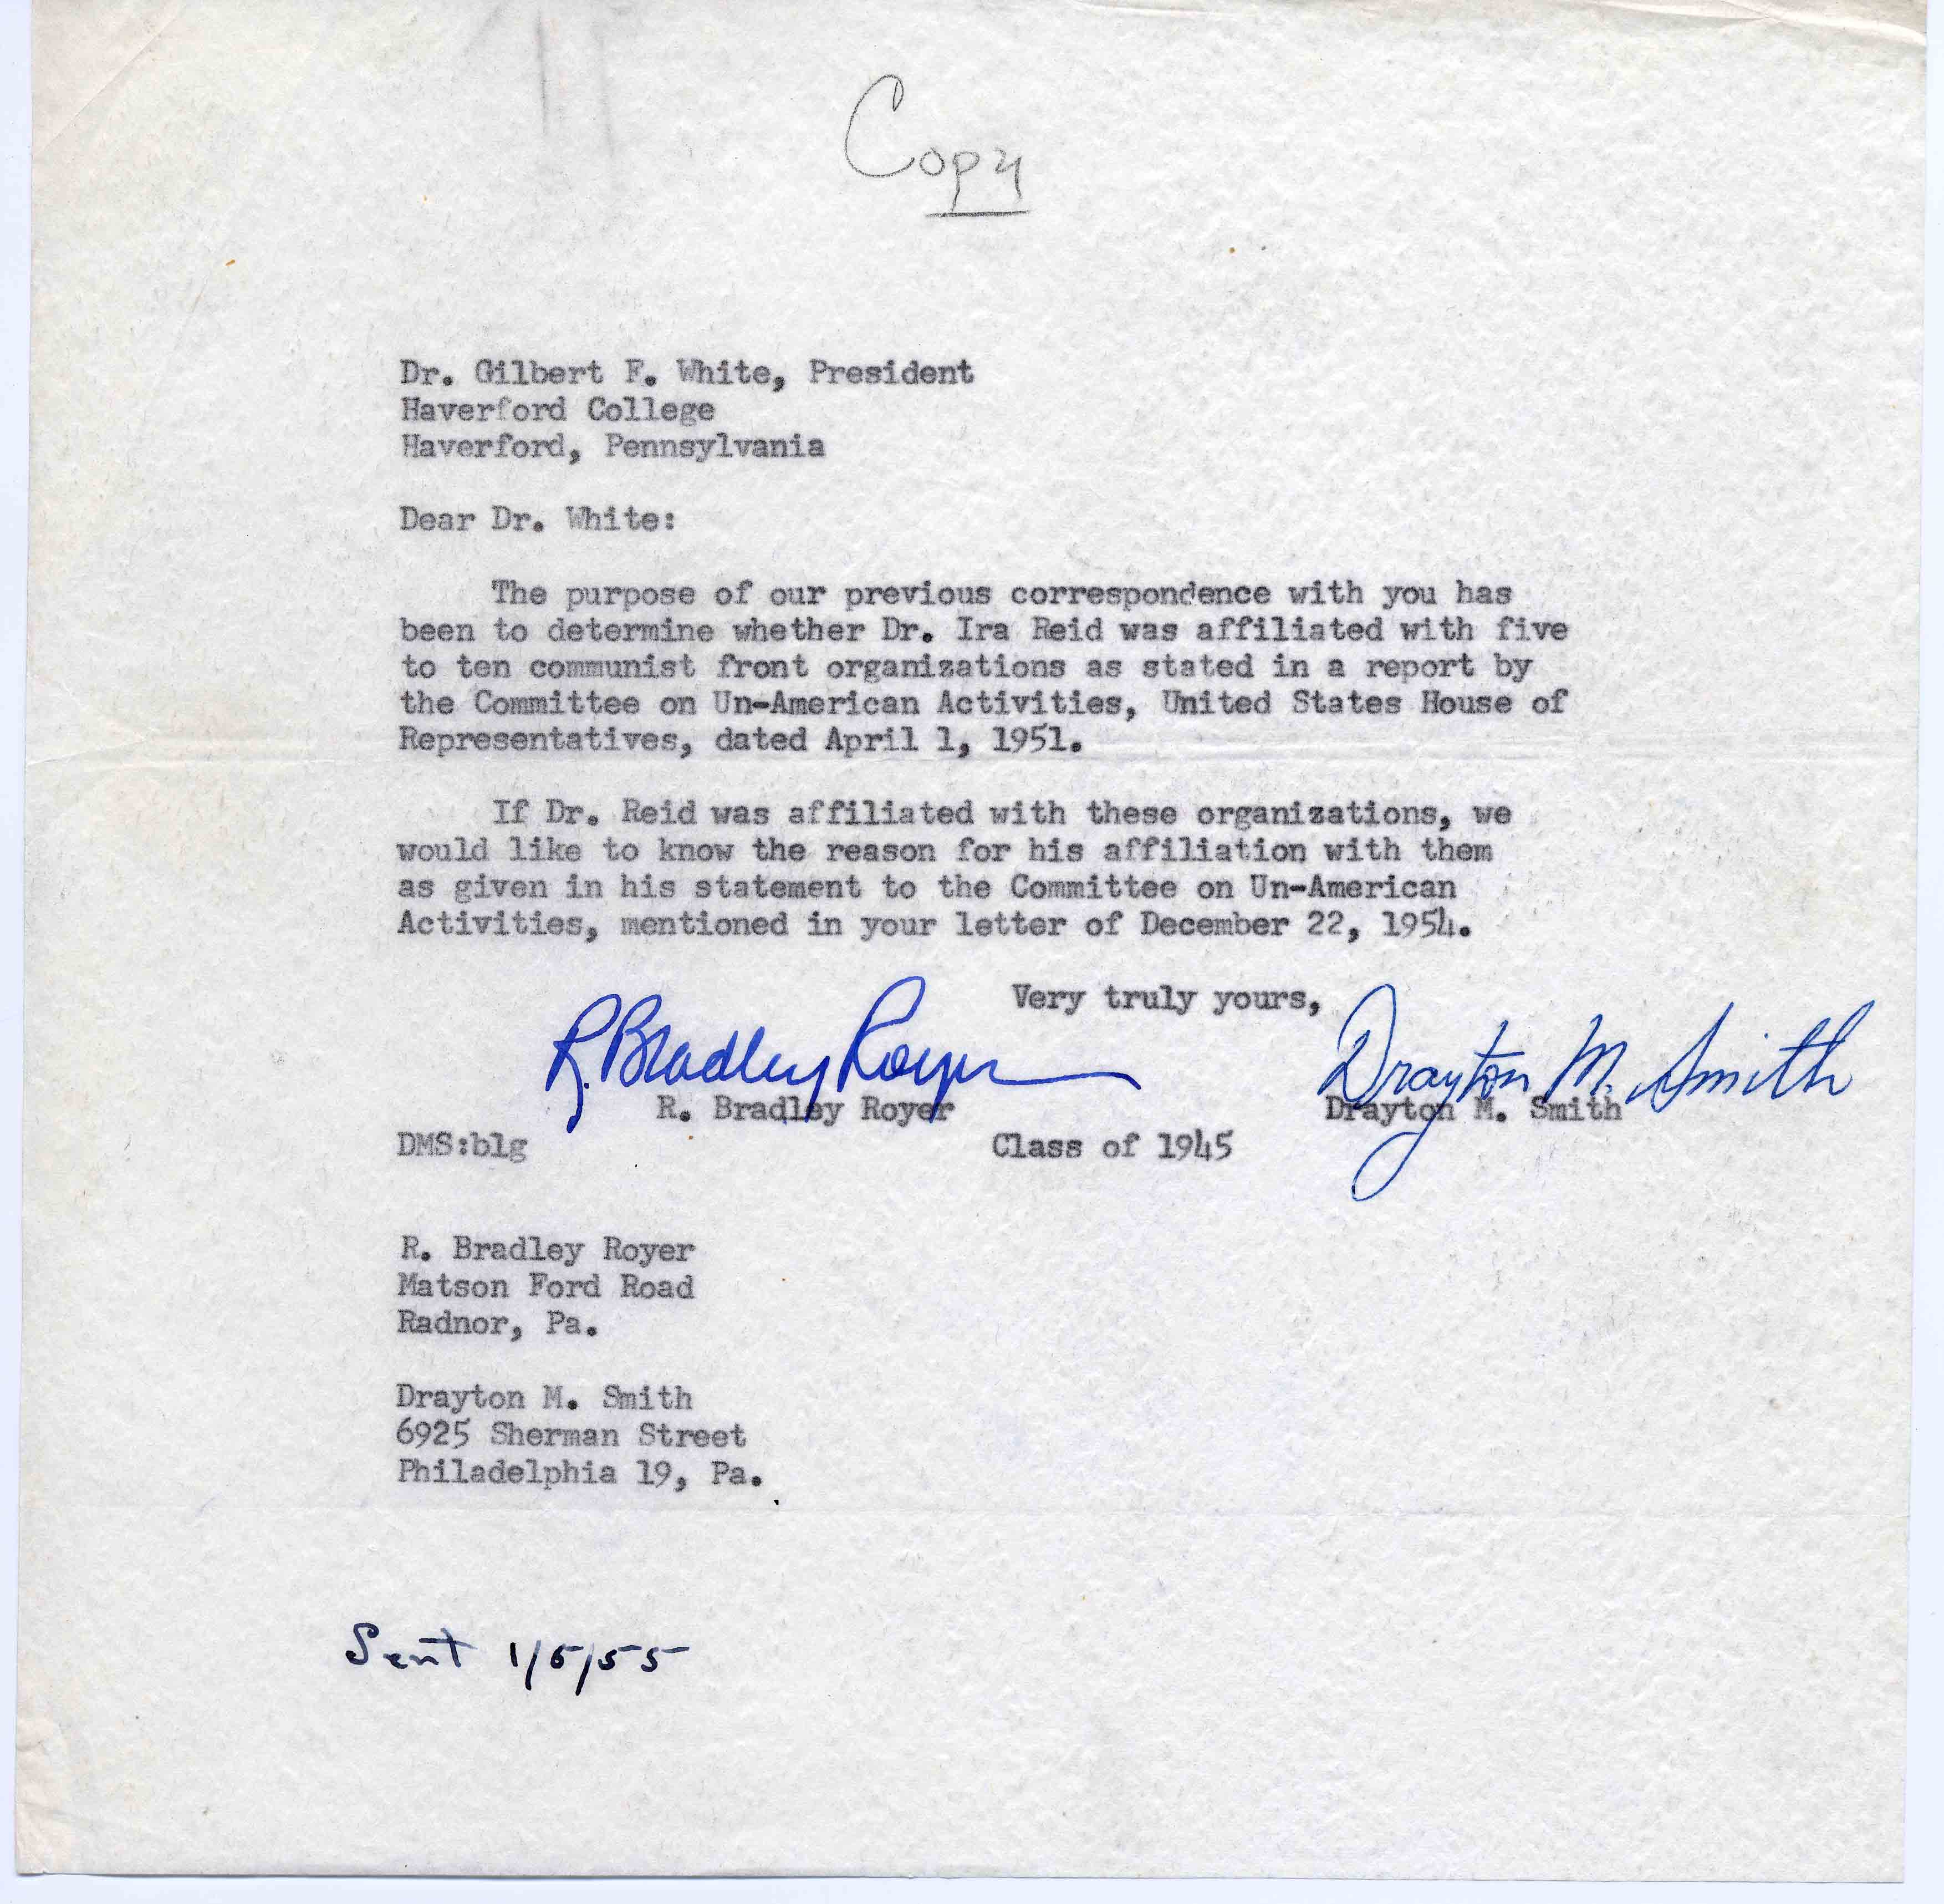 Copy
Dr. Gilbert F. White, President
Haverford College
Haverford, Pennsylvania
Dear Dr. White:
The purpose of our previous correspondence with you has
been to determine whether Dr. Ira Reid was affiliated with five
to ten communist front organizations as stated in a report by
the Committee on Un-American Activities, United States House of
Representatives, dated April 1, 1951.
If Dr. Reid was affiliated with these organizations, we
would like to know the reason for his affiliation with them
as given in his statement to the Committee on Un-American
Activities, mentioned in your letter of December 22, 1954.
Very truly yours,
R. Bradley Royer Drayton M. Smith
R. Bradley Royer Drayton M. Smith
DMS:blg Class of 1945
R. Bradley Royer
Matson Ford Road
Radnor, Pa.
Drayton M. Smith
6925 Sherman Street
Philadelphia 19, Pa.
Sent 1/5/55